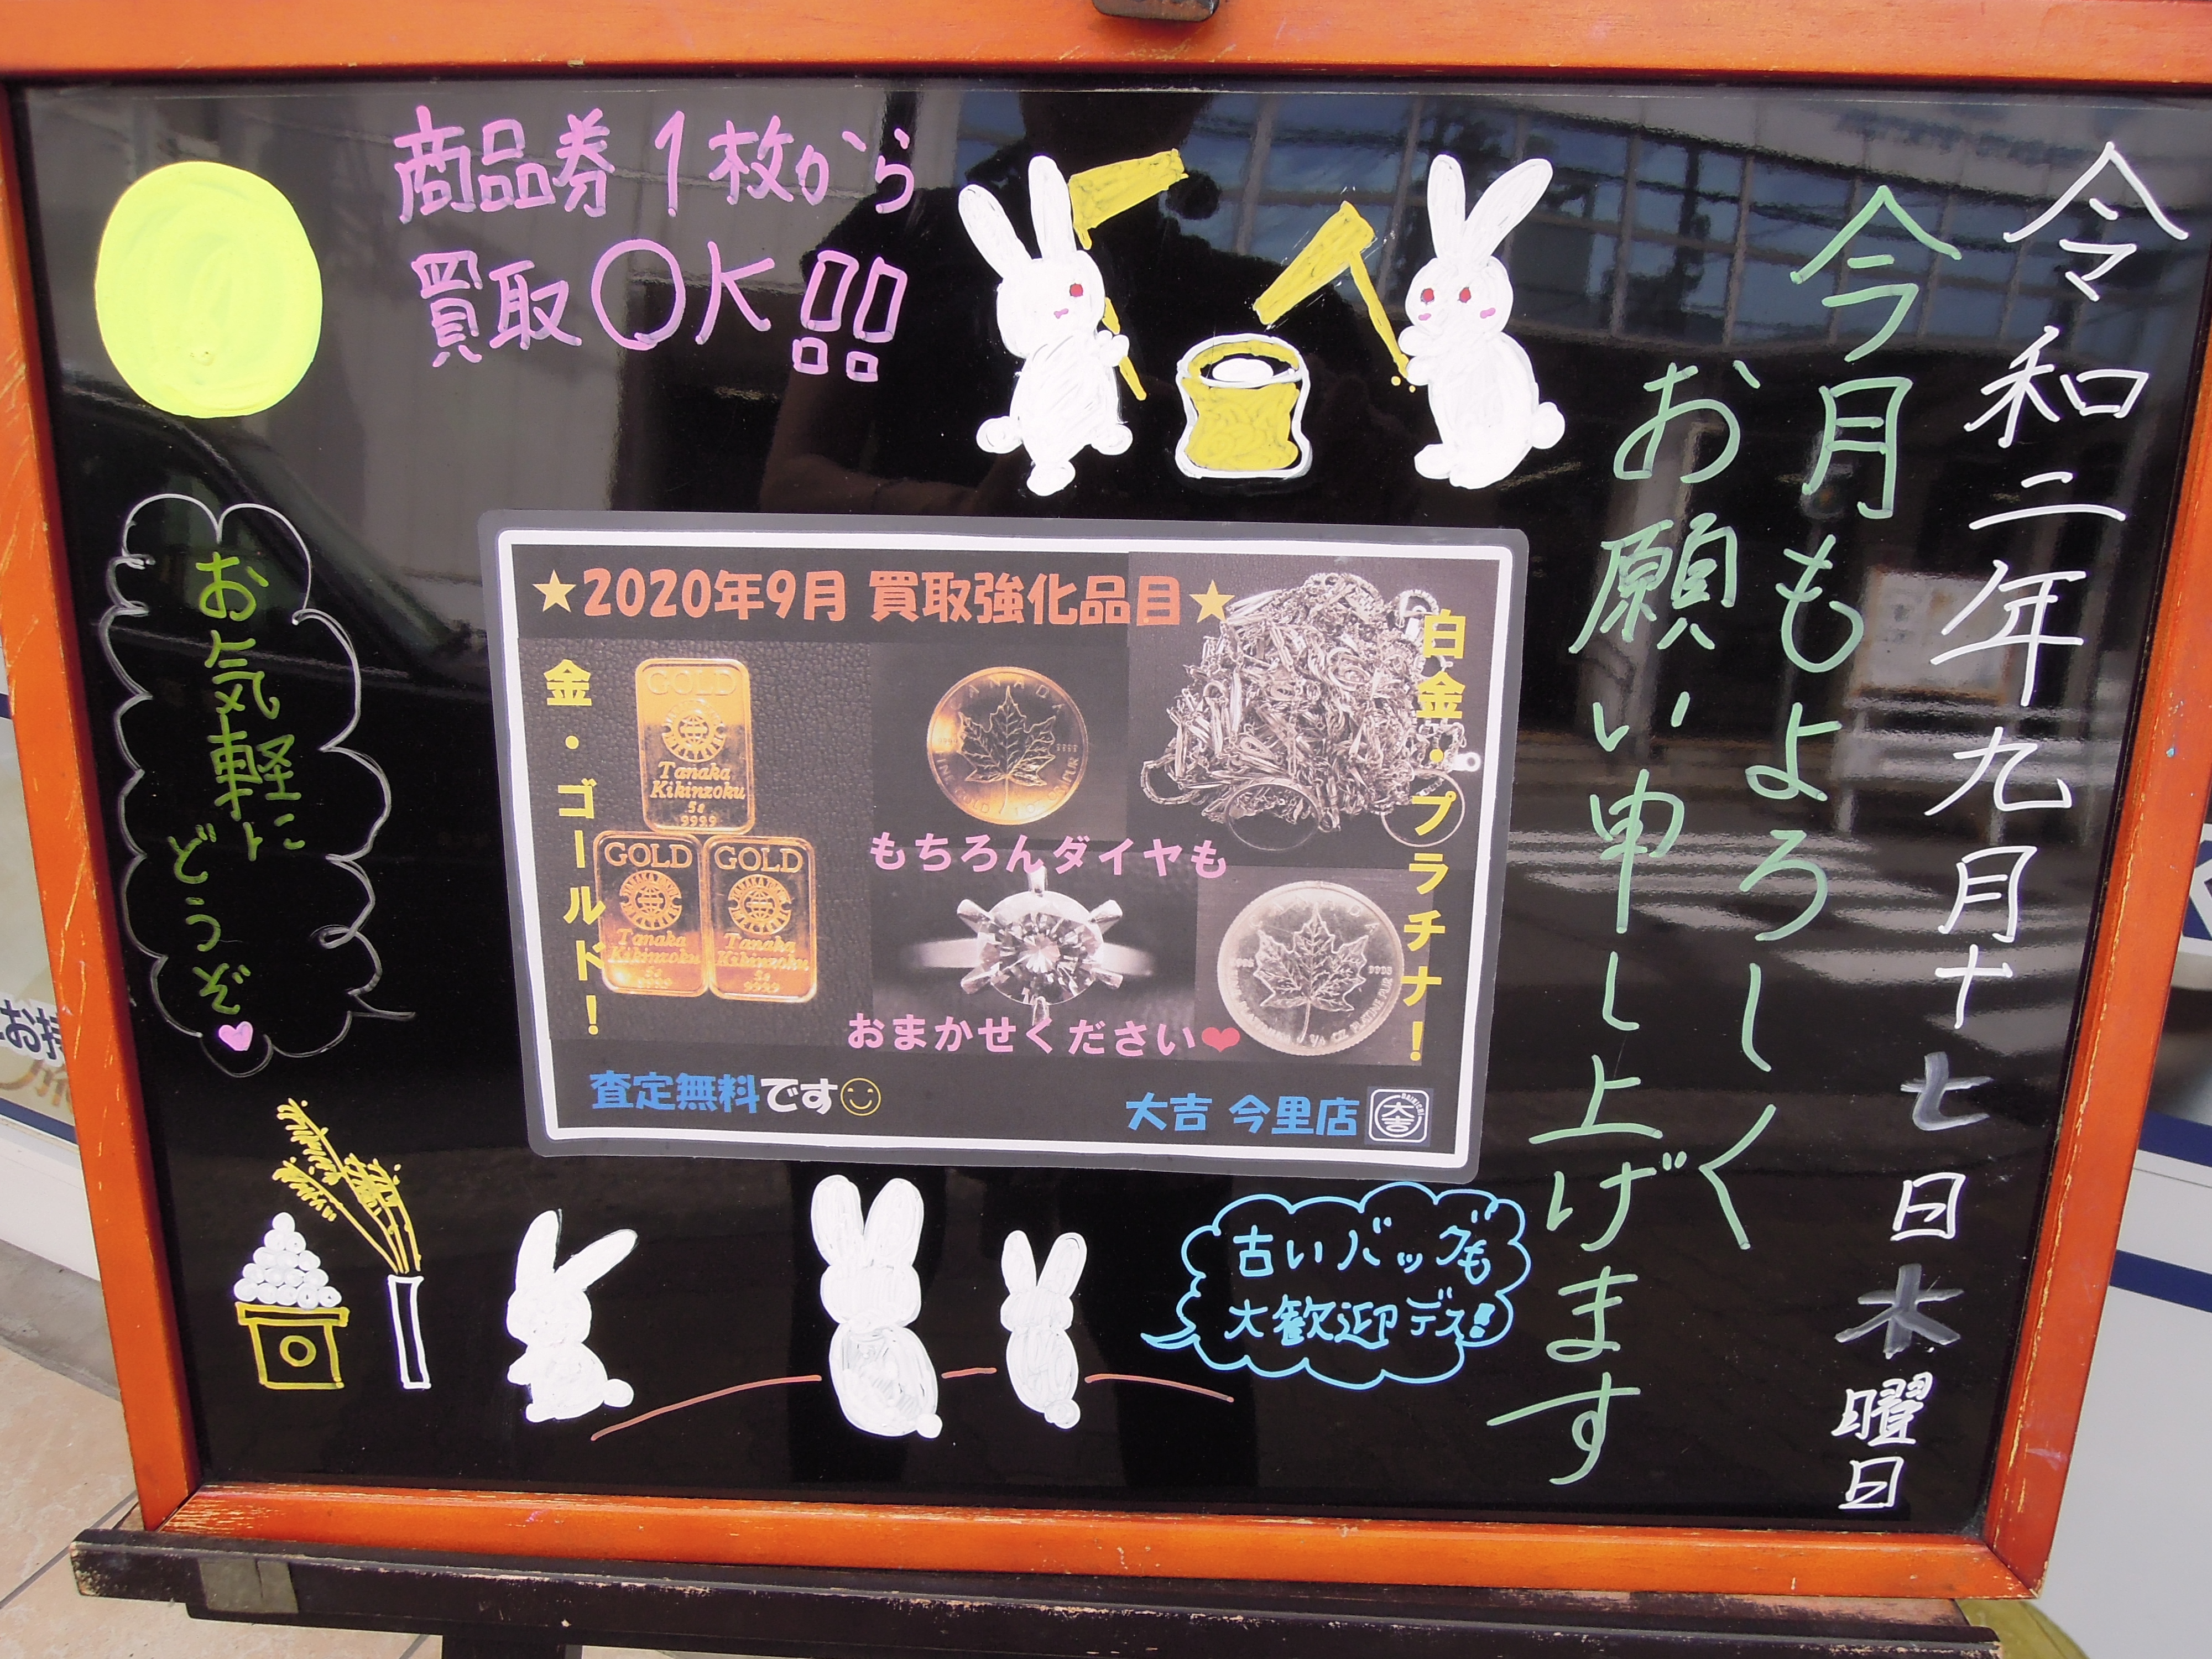 令和二年九月十七日木曜日
今月もよろしく
お願い申し上げます
商品券1枚から
買取OK!!
お気軽に
どうぞ
★2020年9月 買取強化品目★
金・ゴールド！
白金・プラチナ！
GOLD
Tanaka
Kikinzoku
5g
999.9
GOLD
Tanaka
Kikinzoku
5g
999.9
GOLD
Tanaka
Kikinzoku
5g
999.9
もちろんダイヤも
おまかせください❤
査定無料です☺
大吉 今里店
大吉
古いバッグも
大歓迎デス!